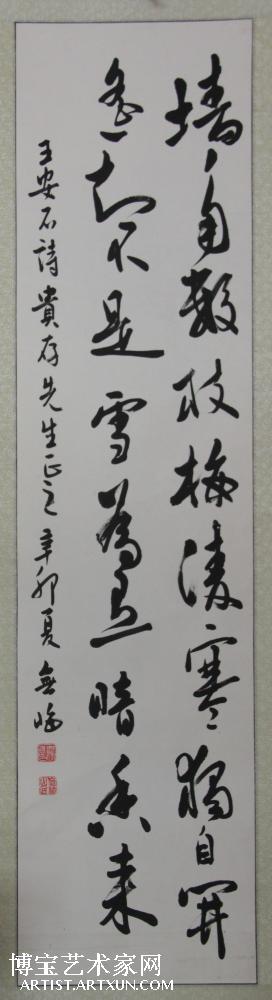 墙角數枝梅凌寒獨自開
遥知不是雪為有暗香来
王安石詩貴存先生正之辛卯夏無
博宝艺术家网
ARTIST.ARTXUN.COM